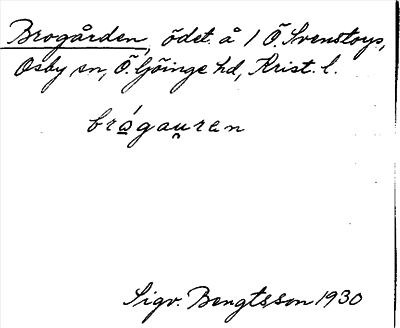 Brogården, ödet. å 1 Ö. Svenstorps,
Osby sn, Ö. Göinge hd, Krist. l.
brógau̯ren
Sigv. Bengtsson 1930